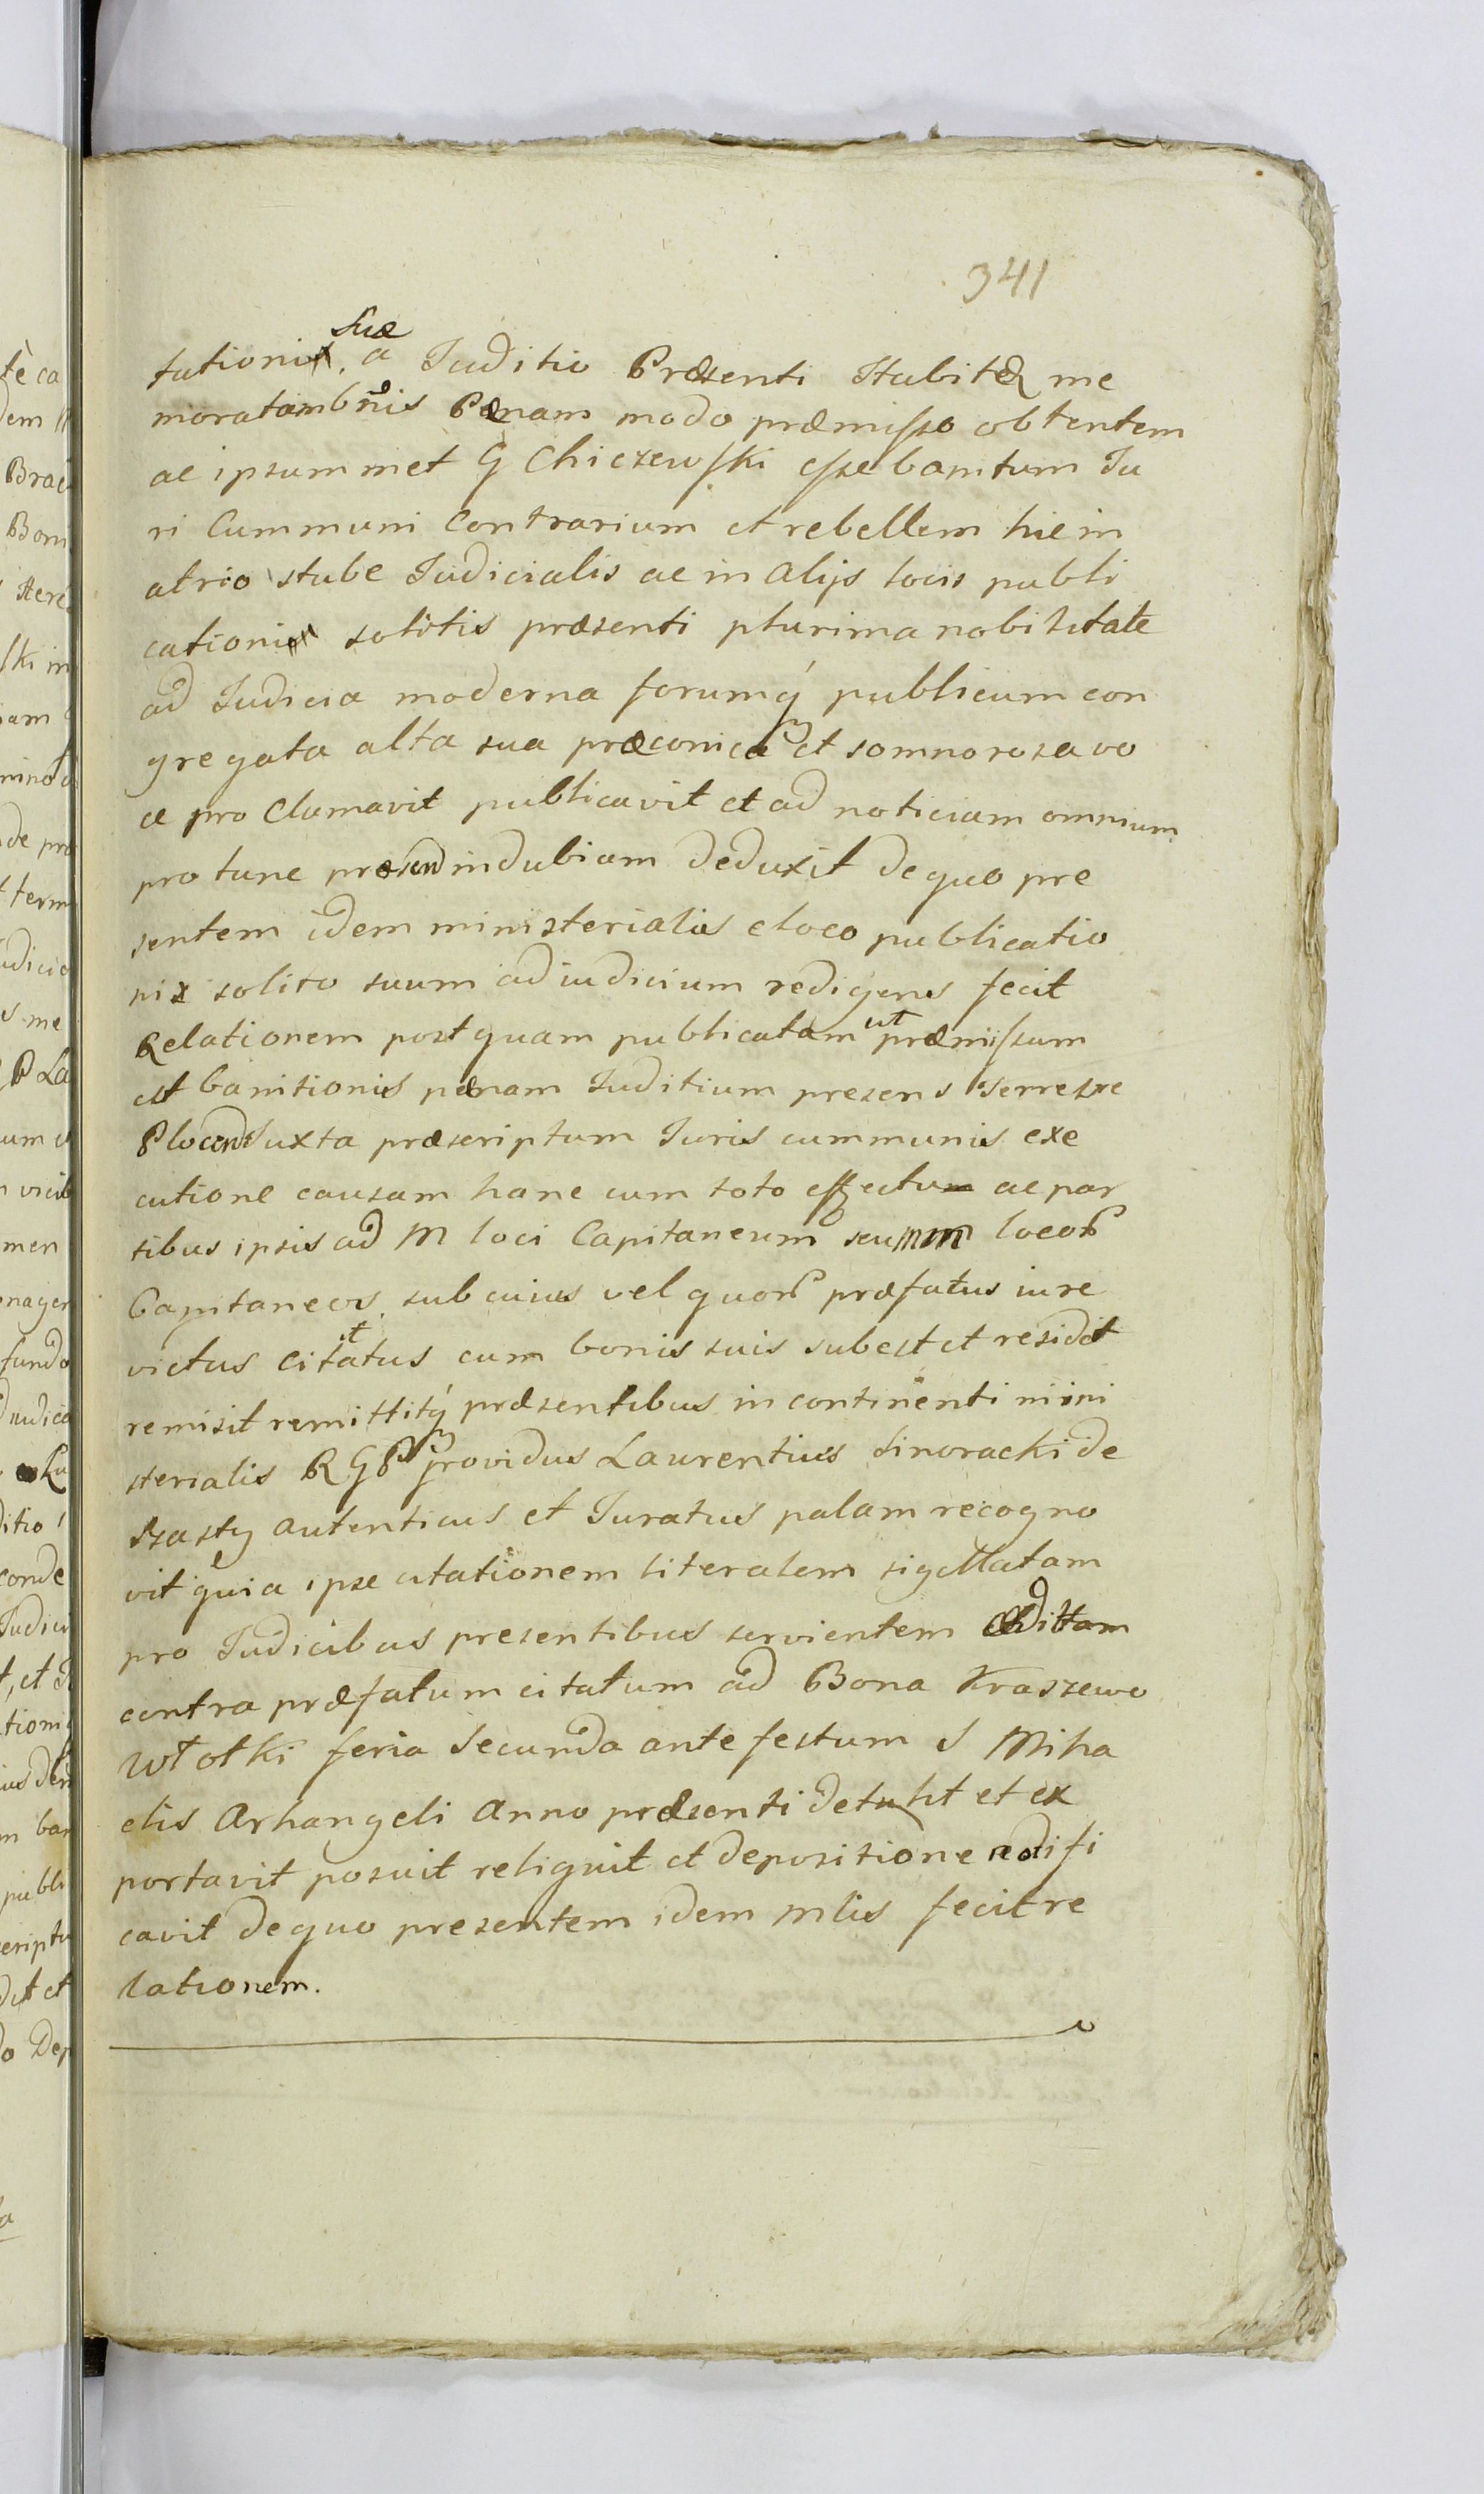 341
tationis suæ a Juditio Præsenti Stabiter me
moratam bnis Pænam modo præmisso obtentem
ac ipsummet G Chiczewski esse banitum Ju
ri Cummuni Contrarium et rebellem hic in
atrio stube Judicialis ac in alijs locis publi
cationis solitis præsenti plurima nobilitate
ad Judicia moderna forumq publicum con
gregata alta sua præconica et somnorosa vo
ce pro Clamavit publicavit et ad noticiam omnium
pro tunc indubiam deduxit de quo pre
sentem idem ministerialis e loco publicatio
nis solito suum ad iudicium redigens fecit
Relationem post quam publicatam ut præmissum
est banitionis pænam Juditium presens Terrestre
Plocens Juxta præscriptum Juris cummunis exe
cutione causam hanc cum toto effectu ac par
tibus ipsis ad M loci Capitaneum seu MM locor
Capitaneos sub cuius vel quor præfatus iure
victus citatus cum bonis suis subest et residet
remisit remittitq præsentibus in continenti mini
sterialis R G P providus Laurentius Sinoracki de
Szasty autenticus et Juratus palam recogno
vit quia ipse citationem literalem sigillatam
pro Judicibus presentibus servientem Edittam
contra præfatum citatum ad Bona Kraszewo
Wtotki feria Secunda ante festum S Miha
elis Arhangeli Anno præsenti detulit et ex
portavit posuit reliquit et depositione nedifi
cavit de quo presentem idem Mlis fecit re
lationem.